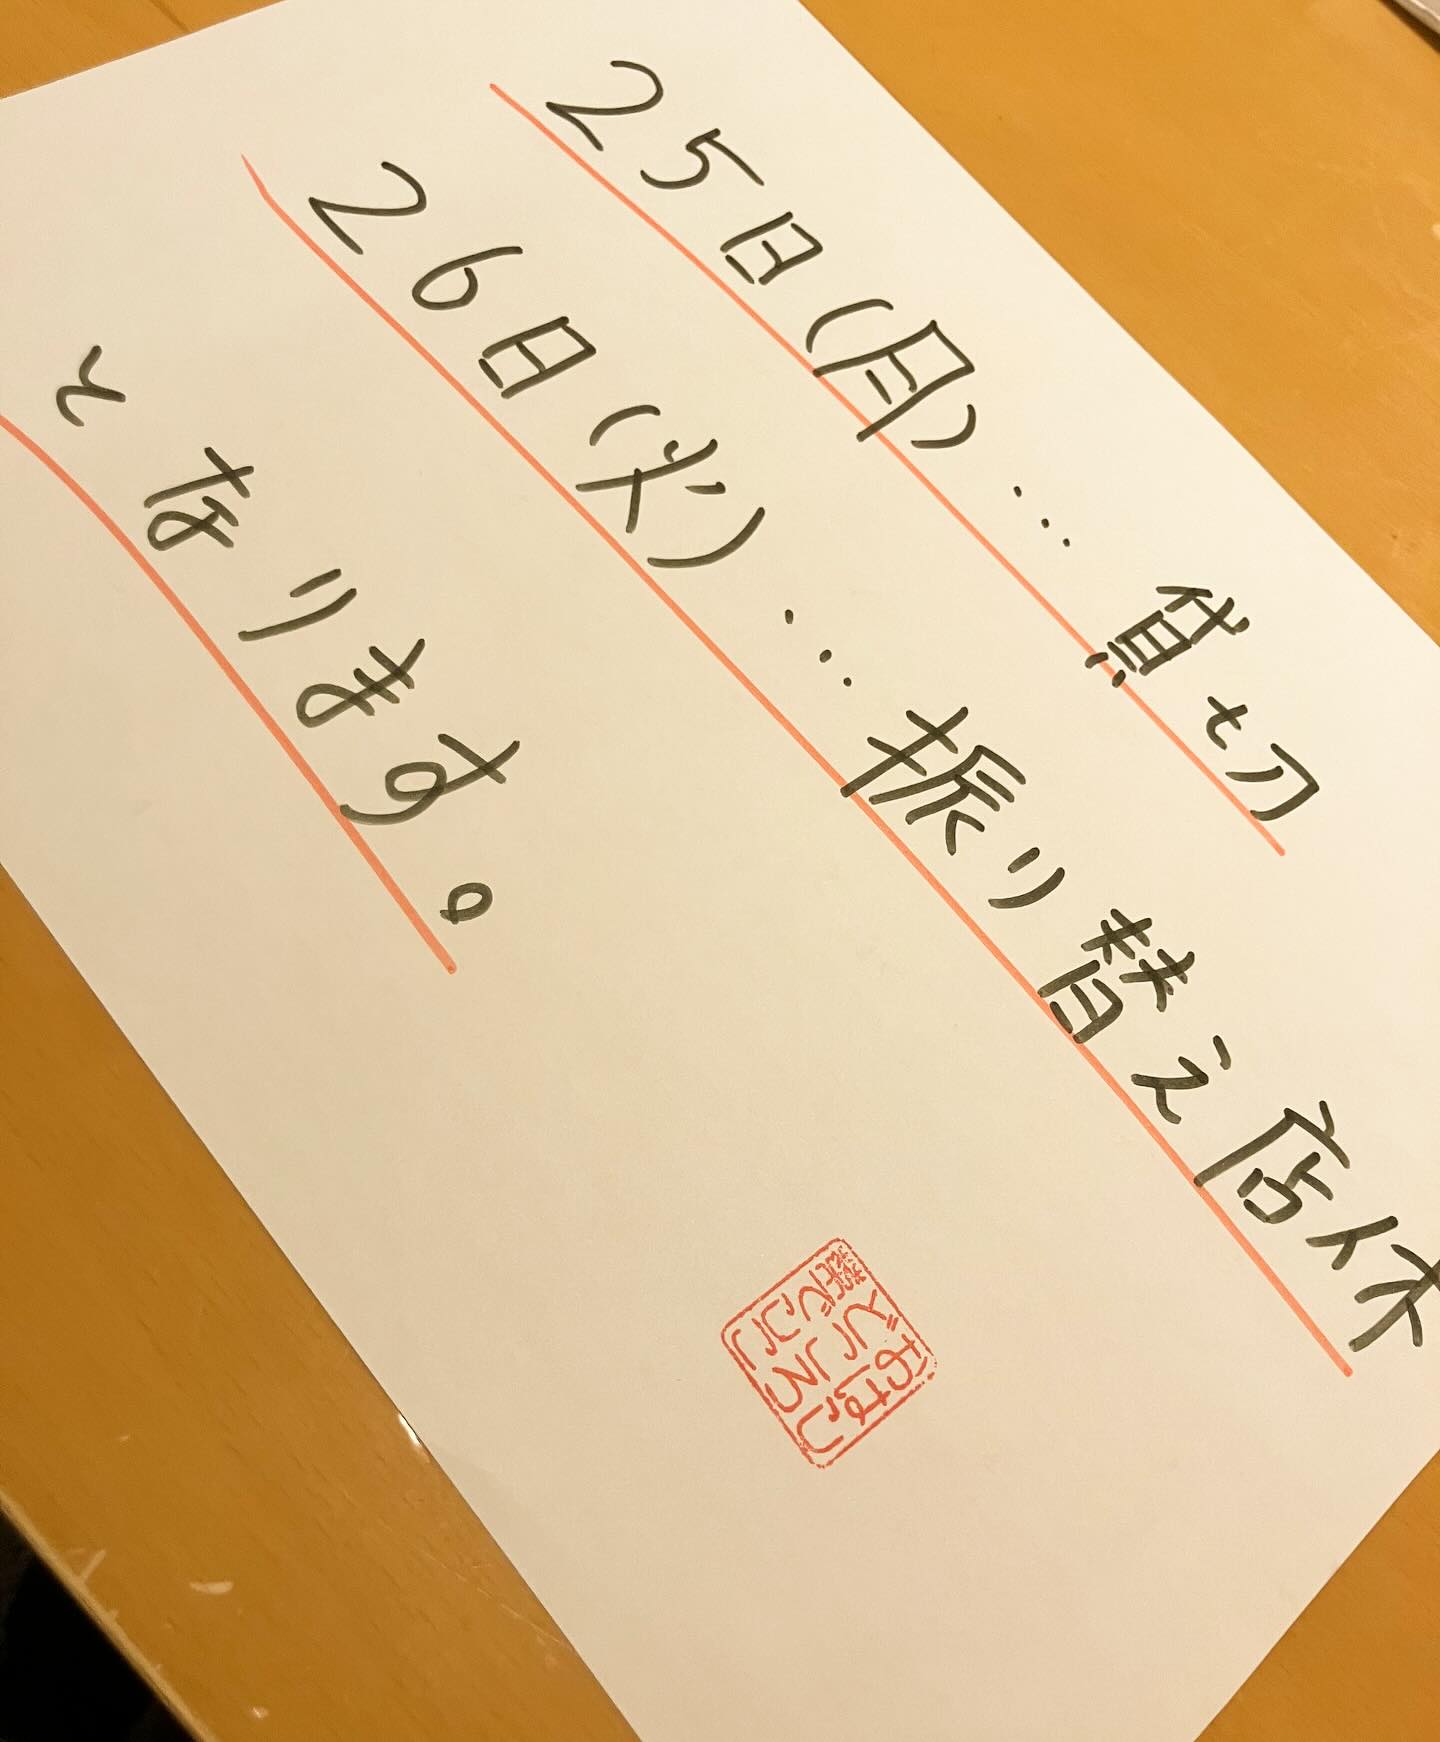 25日(月)…貸切
26日(火)…振り替え店休
となります。